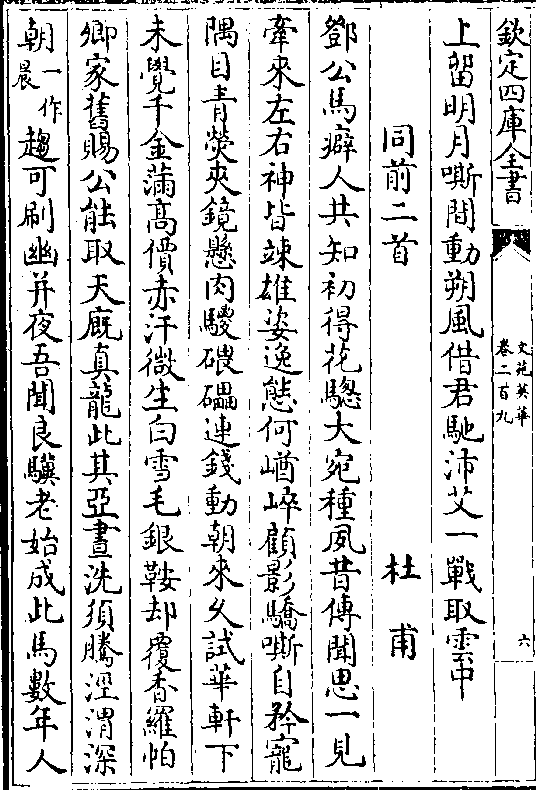 欽定四庫全書
文苑英華
卷二百九
六
上留明月嘶間動朔風借君馳沛艾一戰取雲中
同前二首
杜甫
鄧公馬癖人共知初得花驄大宛種夙昔傳聞思一見
牽來左右神皆竦雄姿逸態何崷崪顧影驕嘶自矜寵
隅目青熒夾鏡懸肉騣磥礧連錢動朝來久試華軒下
未覺千金滿高價赤汗微生白雪毛銀鞍却覆香羅帕
卿家舊賜公能取天廐真龍此其亞晝洗須騰涇渭深
朝一作晨趨可刷幽并夜吾聞良驥老始成此馬數年人